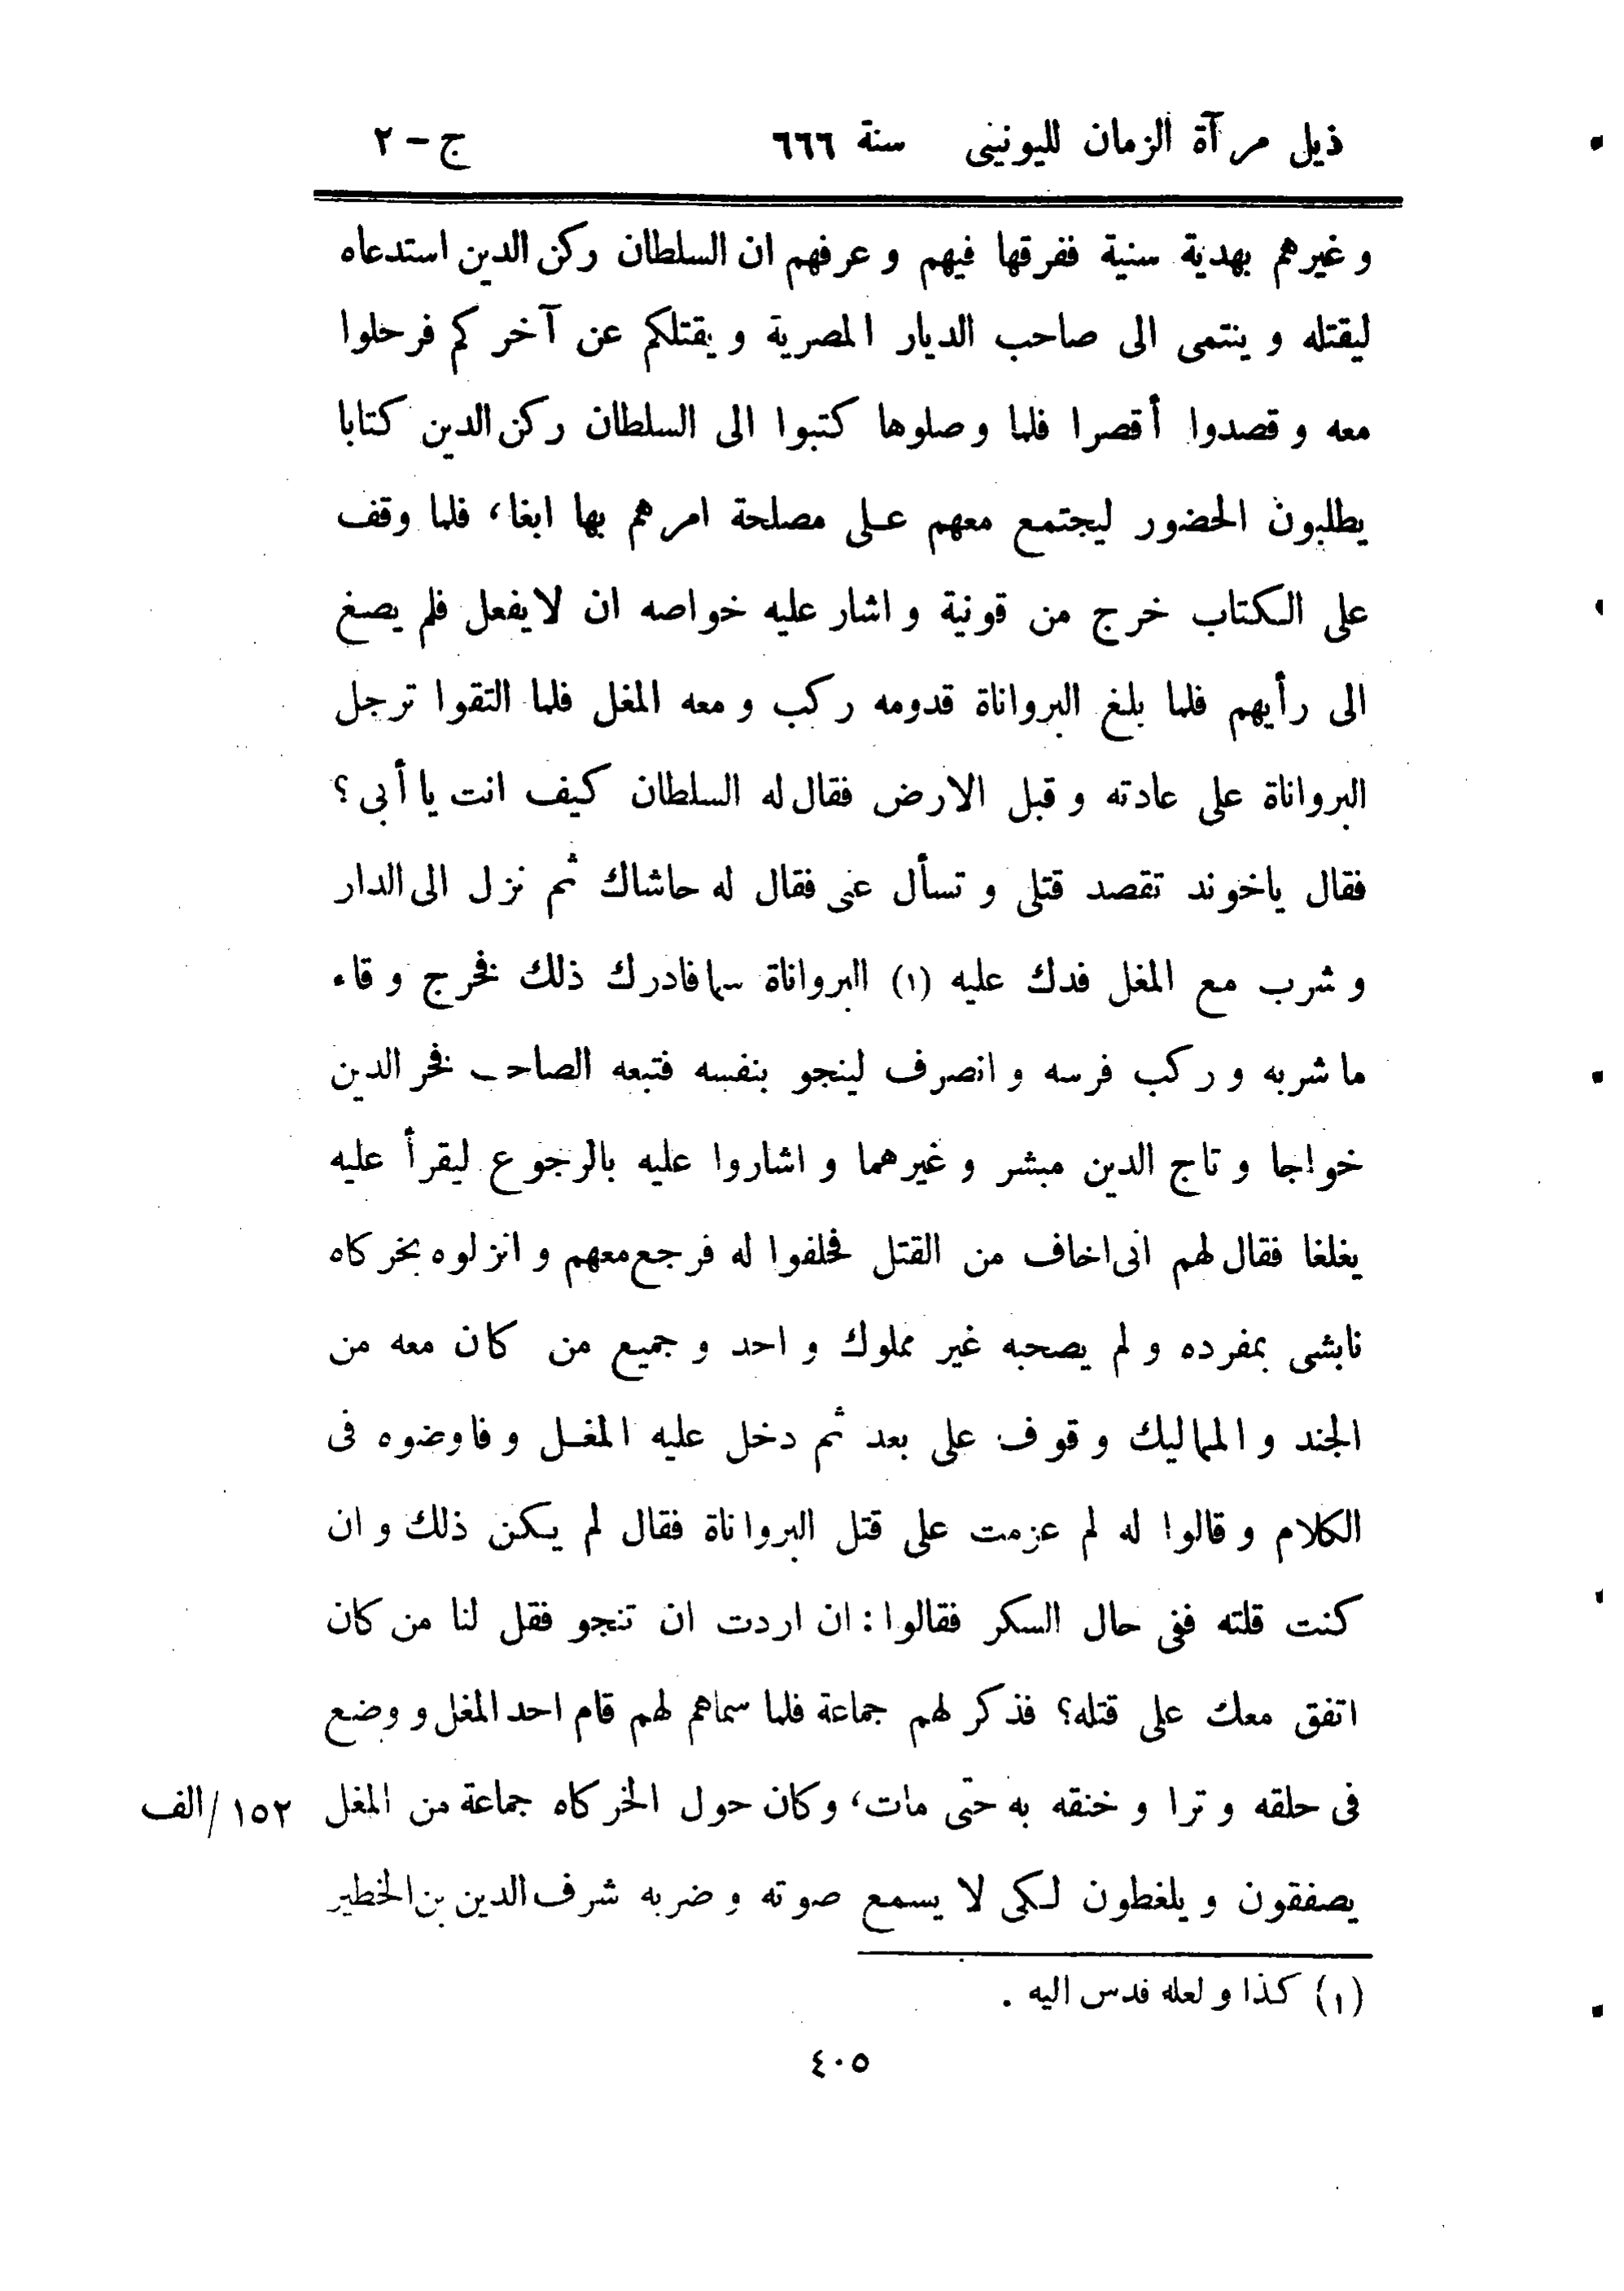 ذيل مرآة الزمان لليونيني سنة ٦٦٦ ج - ٢
و غيرهم بهدية سنية ففرقها فيهم و عرفهم ان السلطان ركن الدين استدعاه
ليقتله و ينتمى الى صاحب الديار المصرية و يقتلكم عن آخركم فرحلوا
معه و قصدوا أقصرا فلما وصلوها كتبوا الى السلطان ركن الدين كتابا
يطلبون الحضور ليجتمع معهم على مصلحة امرهم بها ابغا، فلما وقف
على الكتاب خرج من قونية و اشار عليه خواصه ان لا يفعل فلم يصغ
الى رأيهم فلما بلغ البرواناة قدومه ركب و معه المغل فلما التقوا ترجل
البرواناة على عادته و قبل الارض فقال له السلطان كيف انت يا أبى ؟
فقال ياخوند تقصد قتلى و تسأل عنى فقال له حاشاك ثم نزل الى الدار
و شرب مع المغل فدك عليه (١) البرواناة سما فادرك ذلك فخرج و قاء
ما شربه و ركب فرسه و انصرف لينجو بنفسه فتبعه الصاحب فخر الدين
خواجا و تاج الدين مبشر و غيرهما و اشاروا عليه بالرجوع ليقرأ عليه
يغلغا فقال لهم انى اخاف من القتل فحلفوا له فرجع معهم و انزلوه بخركاه
نابشى بمفرده و لم يصحبه غير مملوك و احد و جميع من كان معه من
الجند و المماليك و قوف على بعد ثم دخل عليه المغل و فاوضوه فى
الكلام و قالوا له لم عزمت على قتل البرواناة فقال لم يكن ذلك و ان
كنت قلته ففى حال السكر فقالوا : ان اردت ان تنجو فقل لنا من كان
اتفق معك على قتله؟ فذكر لهم جماعة فلما سماهم لهم قام احد المغل و وضع
فى حلقه و ترا و خنقه به حتى مات، و كان حول الخركاه جماعة من المغل ١٥٢ /الف
يصفقون و يلغطون لكى لا يسمع صوته و ضربه شرف الدين بن الخطير
(١) كذا و لعله فدس اليه .
٤٠٥